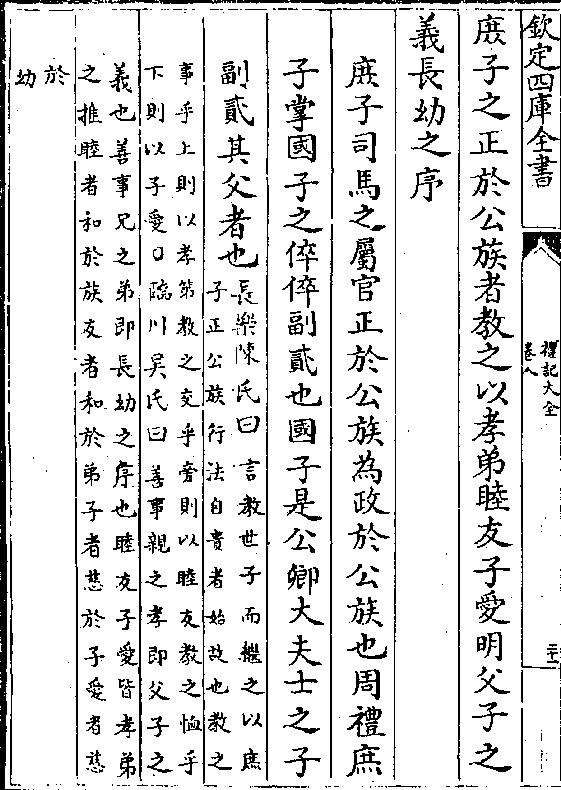 欽定四庫全書
禮記大全
卷八
庻子之正於公族者教之以孝弟睦友子愛明父子之
義長幼之序
庻子司馬之屬官正於公族為政於公族也周禮庻
子掌國子之倅倅副貳也國子是公卿大夫士之子
副貳其父者也
長樂陳氏曰言教世子而繼之以庶
子正公族行法自貴者始故也教之
事乎上則以孝弟教之交乎旁則以睦友教之恤乎
下則以子愛曰臨川吳氏曰善事親之孝即父子之
義也善事兄之弟即長幼之序也睦友子愛皆孝弟
之推睦者和於族友者和於弟子者慈於子愛者慈
於
幼